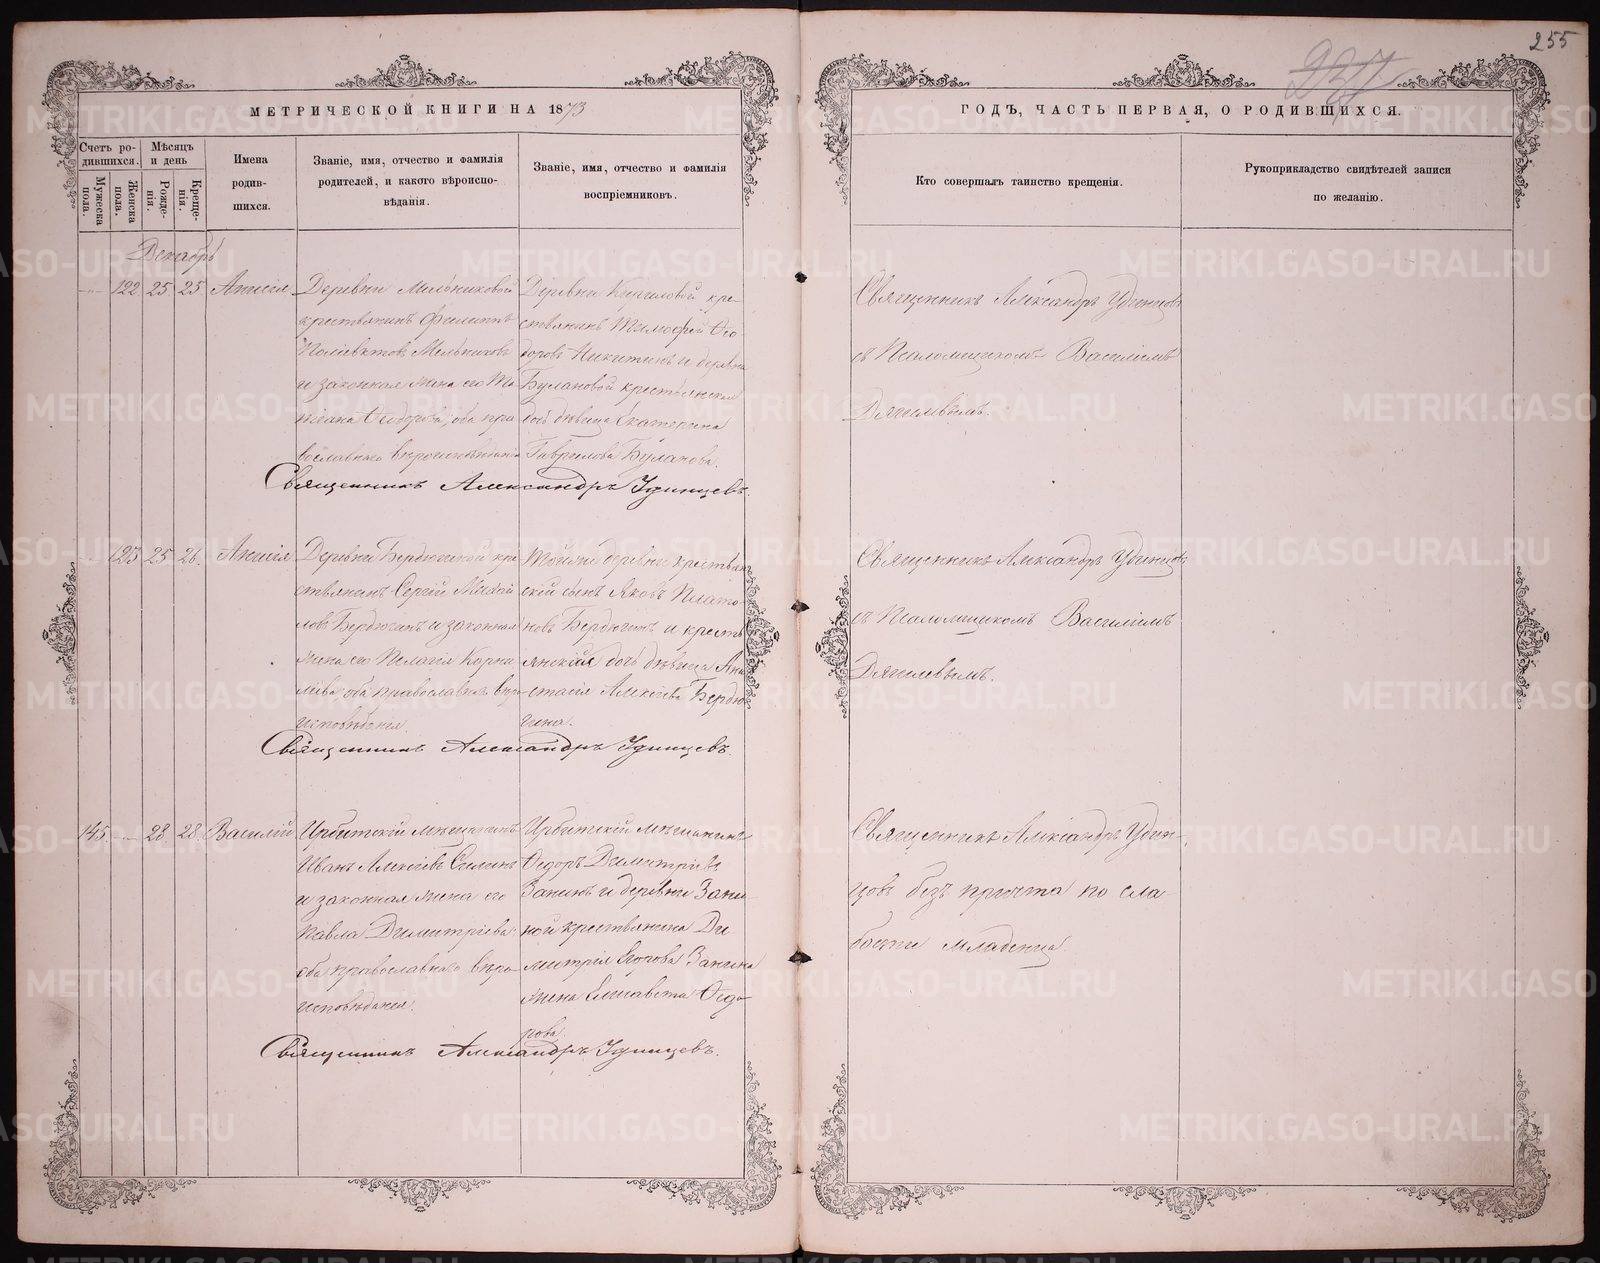 255
МЕТРИЧЕСКОЙ КНИГИ НА 1873
ГОДЪ, ЧАСТЬ ПЕРВАЯ, О РОДИВШИХСЯ.
Счетъ ро-
дившихся.
Мужеска
пола.
Женска
пола.
Мѣсяцъ
и день
Рожде-
нія.
Креще-
нія.
Имена
родив-
шихся.
Званіе, имя, отчество и фамилія
родителей, и какого вѣроиспо-
вѣданія.
Званіе, имя, отчество и фамилія
воспріемниковъ.
Кто совершалъ таинство крещенія.
Рукоприкладство свидѣтелей записи
по желанію.
Декабрь
122 25 25 Анисія
Деревни Мельниковой
крестьянинъ Филиппъ
Поліевктовъ Мельниковъ
и законная жена его Та-
тіана Ѳеодорова, оба пра
вославнаго вѣроисповѣданія
Деревни Кириловой кре-
стьянинъ Тимофей Ѳео-
доровъ Никитинъ и деревни
Булановой крестьянская
дочь дѣвица Екатерина
Гаврилова Буланова.
Священникъ Александръ Удинцовъ
съ Псаломщикомъ Василіемъ
Дягилевымъ.
Священникъ Александръ Удинцевъ.
123 25 26. Анисія
Деревни Бердюгиной кре
стьянинъ Сергій Михай
ловъ Бердюгинъ и законная
жена его Пелагія Корни
ліева, оба православнаго вѣро-
исповѣданія
Тойжи деревни крестьян
скій сынъ Яковъ Плато-
новъ Бердюгинъ и кресть
янская дочь дѣвица Ана
стасія Алексіева Бердю
гина.
Священникъ Александръ Удинцовъ
съ Псаломщикомъ Василіемъ
Дягилевымъ.
Священникъ Александръ Удинцевъ.
145. 28 28. Василій
Ирбитскій мѣщанинъ
Иванъ Алексіевъ
и законная жена его
Павла Димитріева
оба православнаго вѣро-
исповѣданія.
Ирбитскій мѣщанинъ
Ѳедоръ Димитріевъ
Занинъ и деревни Зани-
ной крестьянина Ди
митрія Егорова Занина
жена Елисавета Ѳедо-
рова.
Священникъ Александръ Удин-
цовъ безъ причта по сла-
бости младенца.
Священникъ Александръ Удинцевъ.
METRIKI.GASO-URAL.RU